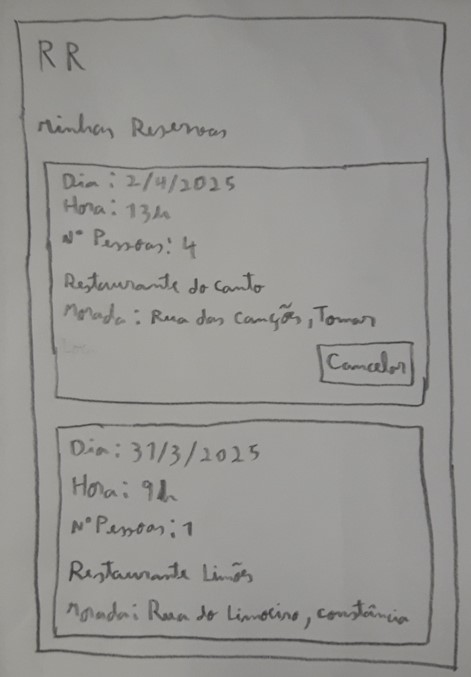 R R
Minhas Reservas
Dia: 2/4/2025
Hora: 13h
Nº Pessoas: 4
Restaurante do Canto
Morada: Rua das Canções, Tomar
Cancelar
Dia: 31/3/2025
Hora: 9h
Nº Pessoas: 1
Restaurante Limões
Morada: Rua do Limoeiro, constância